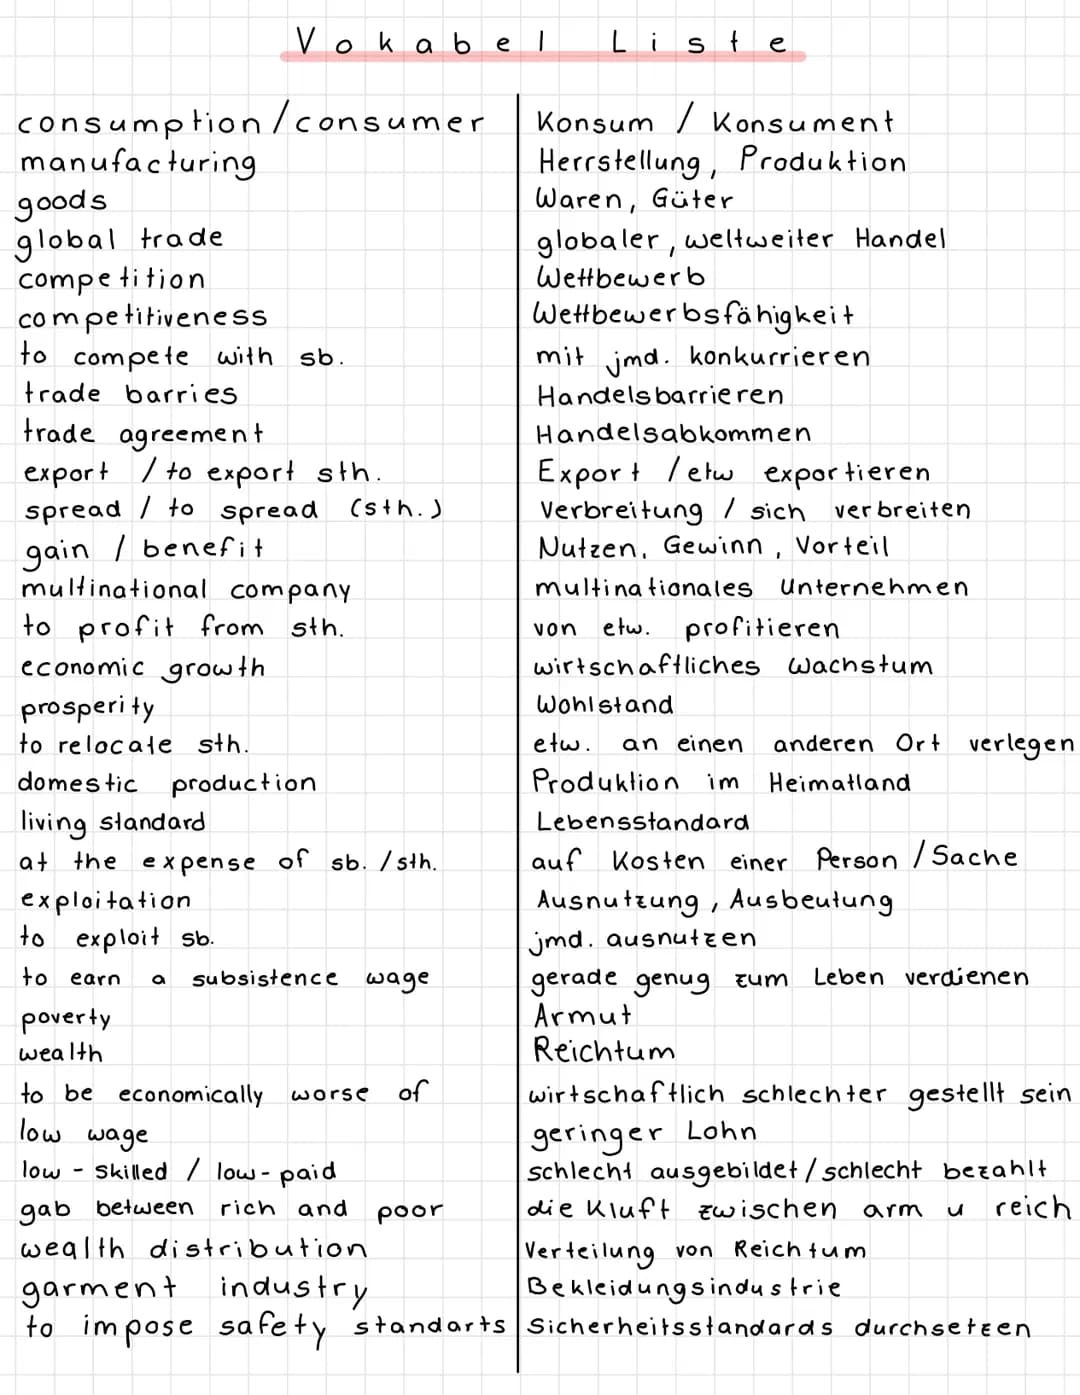 Vokabel Liste
consumption/consumer Konsum / Konsument
manufacturing Herrstellung, Produktion
goods Waren, Güter
global trade globaler, weltweiter Handel
competition Wettbewerb
competitiveness Wettbewerbsfähigkeit
to compete with sb. mit jmd. konkurrieren
trade barries Handelsbarrieren
trade agreement Handelsabkommen
export / to export sth. Export / etw exportieren
spread / to spread (sth.) Verbreitung / sich verbreiten
gain / benefit Nutzen, Gewinn, Vorteil
multinational company multinationales Unternehmen
to profit from sth. von etw. profitieren
economic growth wirtschaftliches Wachstum
prosperity Wohlstand
to relocate sth. etw. an einen anderen Ort verlegen
domestic production Produktion im Heimatland
living standard Lebensstandard
at the expense of sb. / sth. auf Kosten einer Person / Sache
exploitation Ausnutzung, Ausbeutung
to exploit sb. jmd. ausnutzen
to earn a subsistence wage gerade genug zum Leben verdienen
poverty Armut
wealth Reichtum
to be economically worse of wirtschaftlich schlechter gestellt sein
low wage geringer Lohn
low - skilled / low - paid schlecht ausgebildet / schlecht bezahlt
gab between rich and poor die Kluft zwischen arm u reich
wealth distribution Verteilung von Reichtum
garment industry Bekleidungsindustrie
to impose safety standarts Sicherheitsstandards durchsetzen